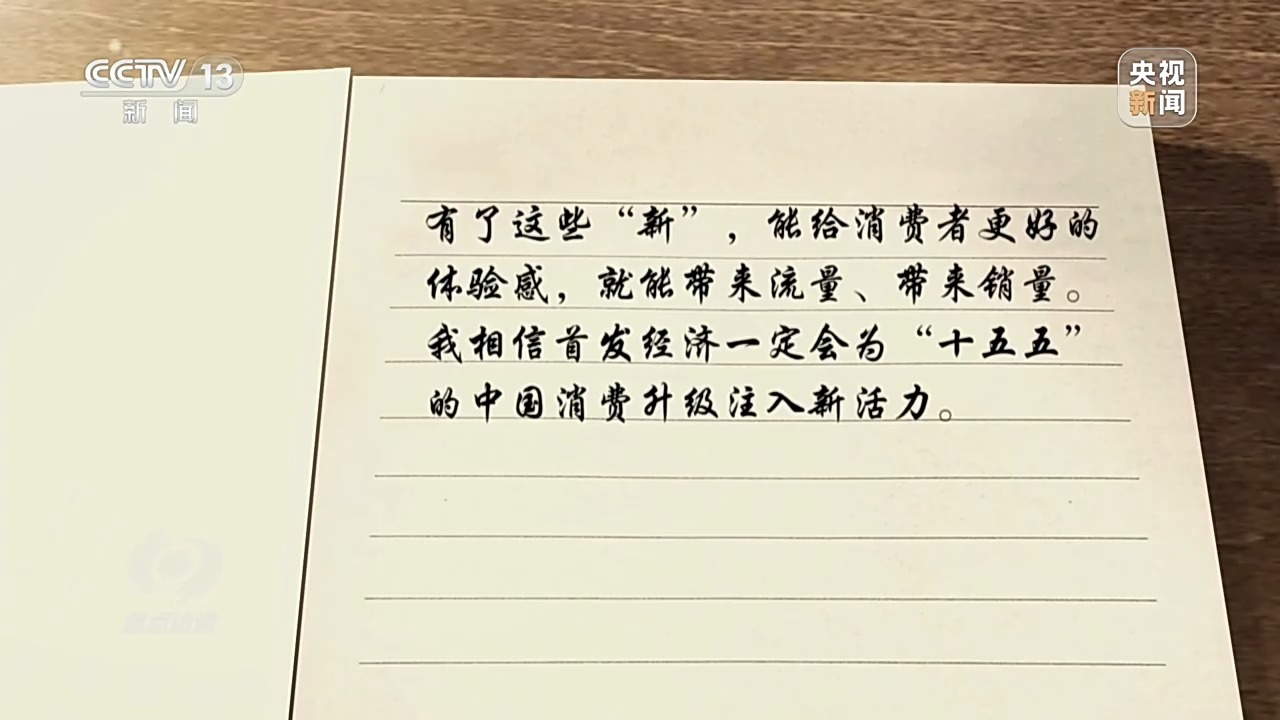 CCTV 13
新闻
央视
新闻
有了这些“新”，能给消费者更好的
体验感，就能带来流量、带来销量。
我相信首发经济一定会为“十五五”
的中国消费升级注入新活力。
焦点访谈